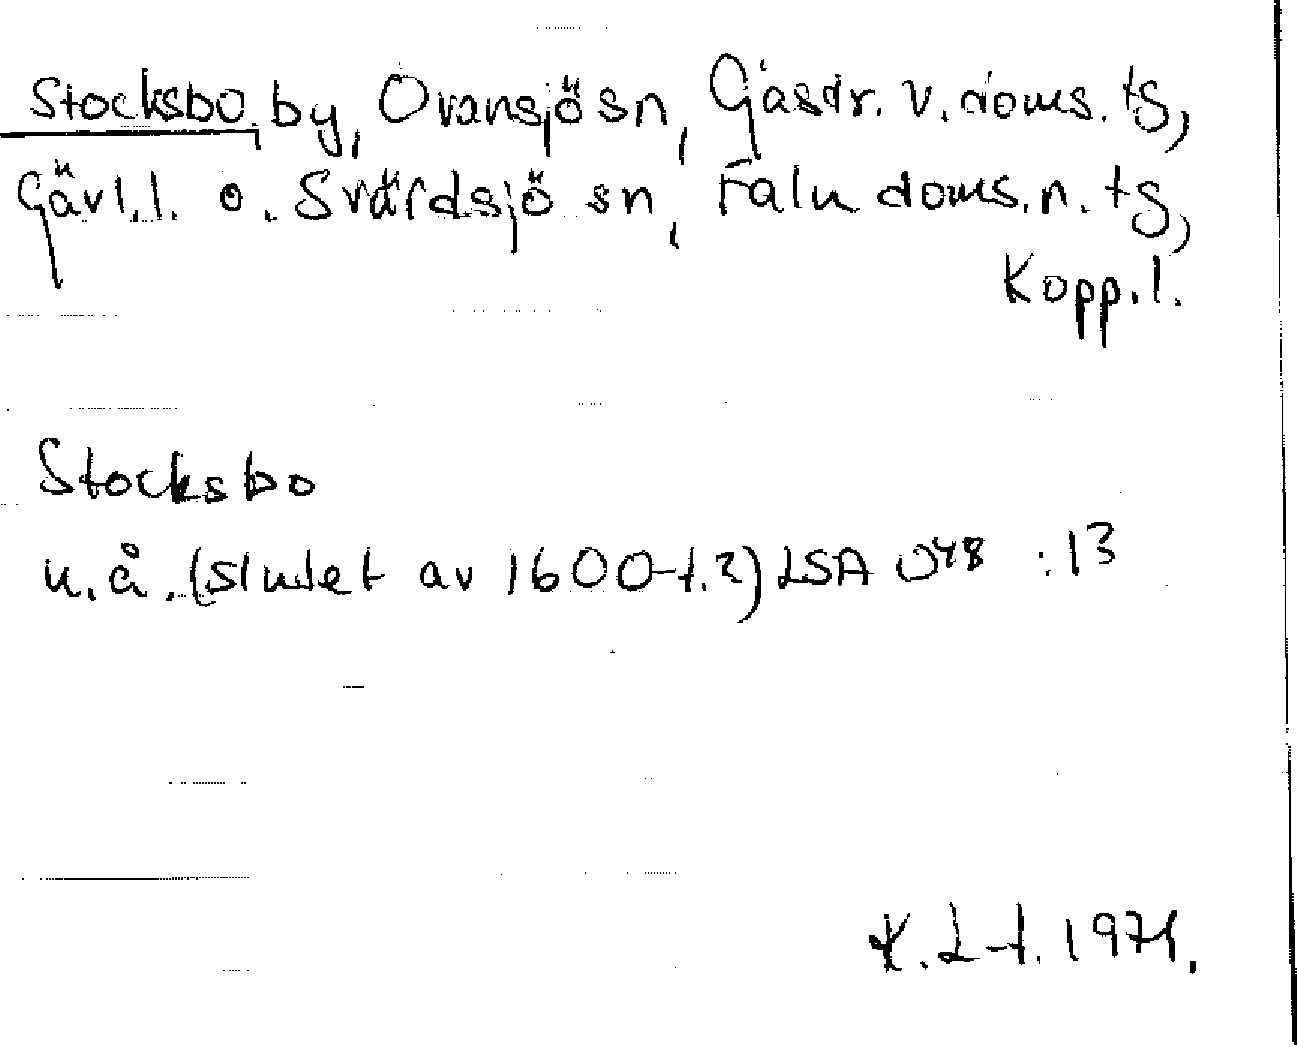 Stocksbo, by, Ovansjö sn, Gästr. v. doms. tg,
Gävl. l. o. Svärdsjö sn, Falu doms. n. tg,
Kopp. l.
Stocksbo
u. å. (slutet av 1600-t.?) LSA U48 :13
K. L-t. 1974.